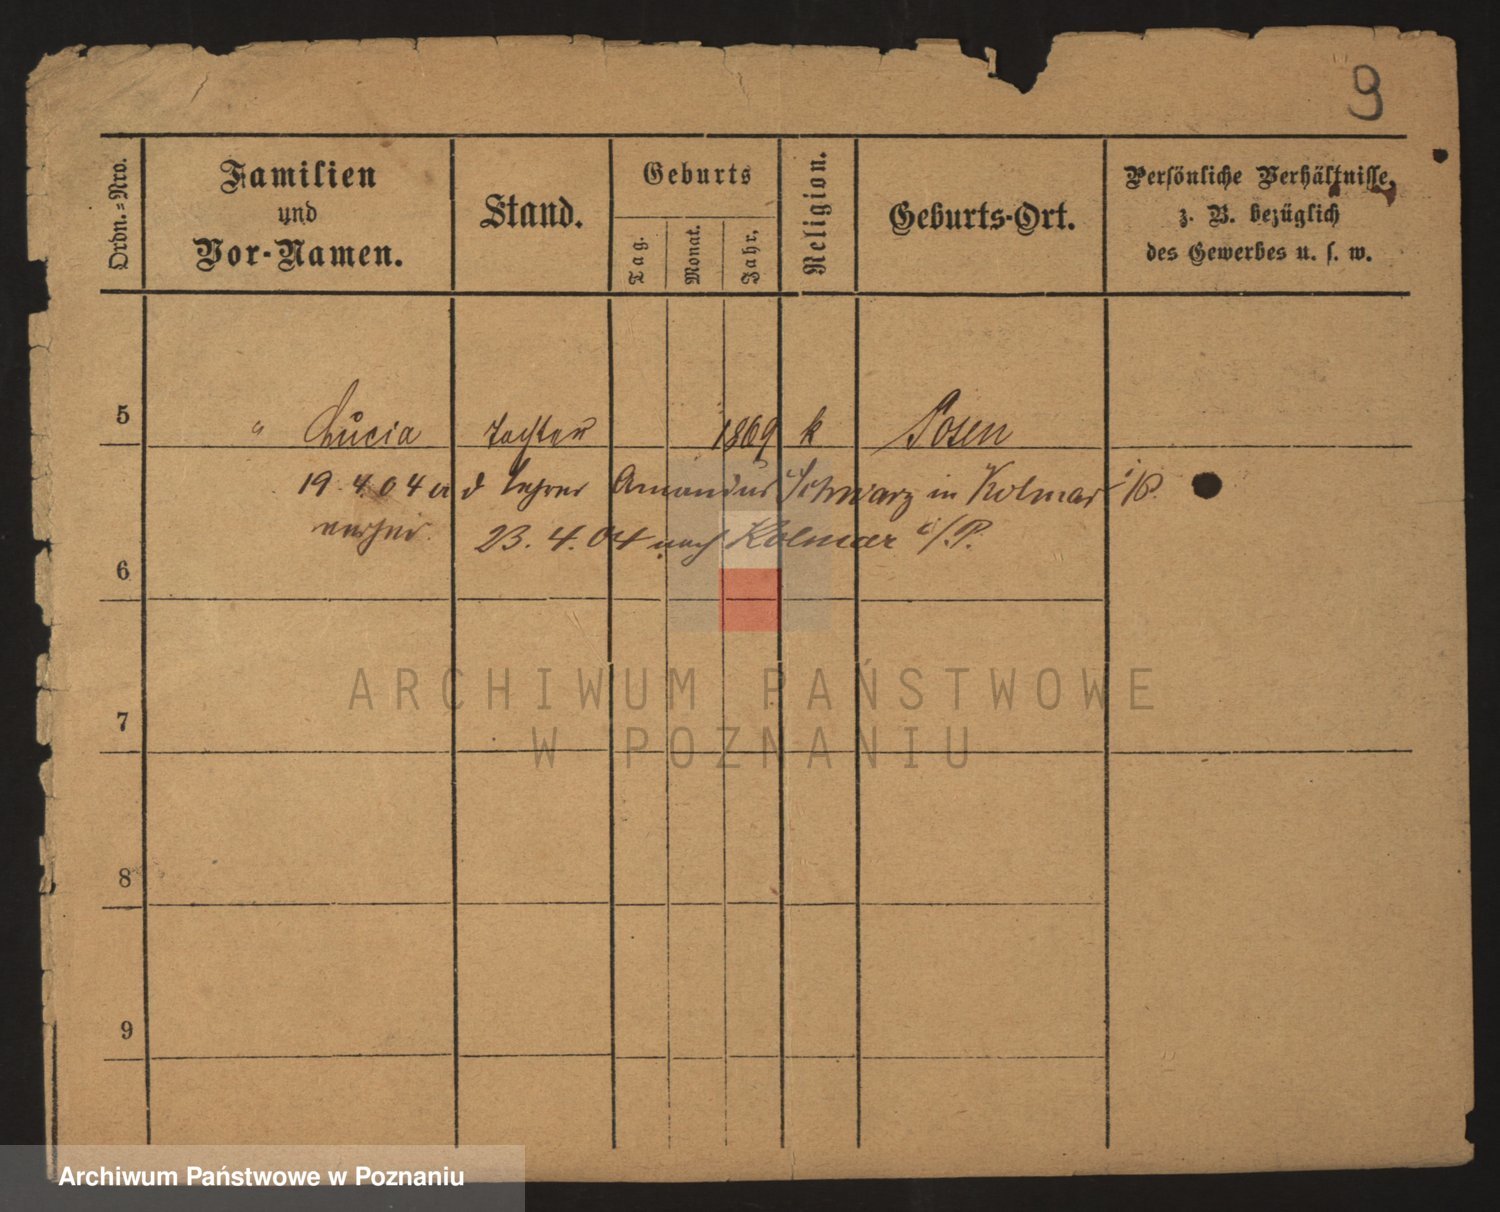 9
Ordn.-Nro.
Familien
und
Vor-Namen.
Stand.
Geburts
Tag.
Monat.
Jahr.
Religion.
Geburts-Ort.
Persönliche Verhältnisse,
z. B. bezüglich
des Gewerbes u. s. w.
5
" Lucia Tochter 1869 k Posen
19.4.04 d Lehrer Amandus Schwarz in Kolmar i/P.
verheir. 23.4.04 nach Kolmar i/P.
6
ARCHIWUM PAŃSTWOWE
W POZNANIU
7
8
9
Archiwum Państwowe w Poznaniu